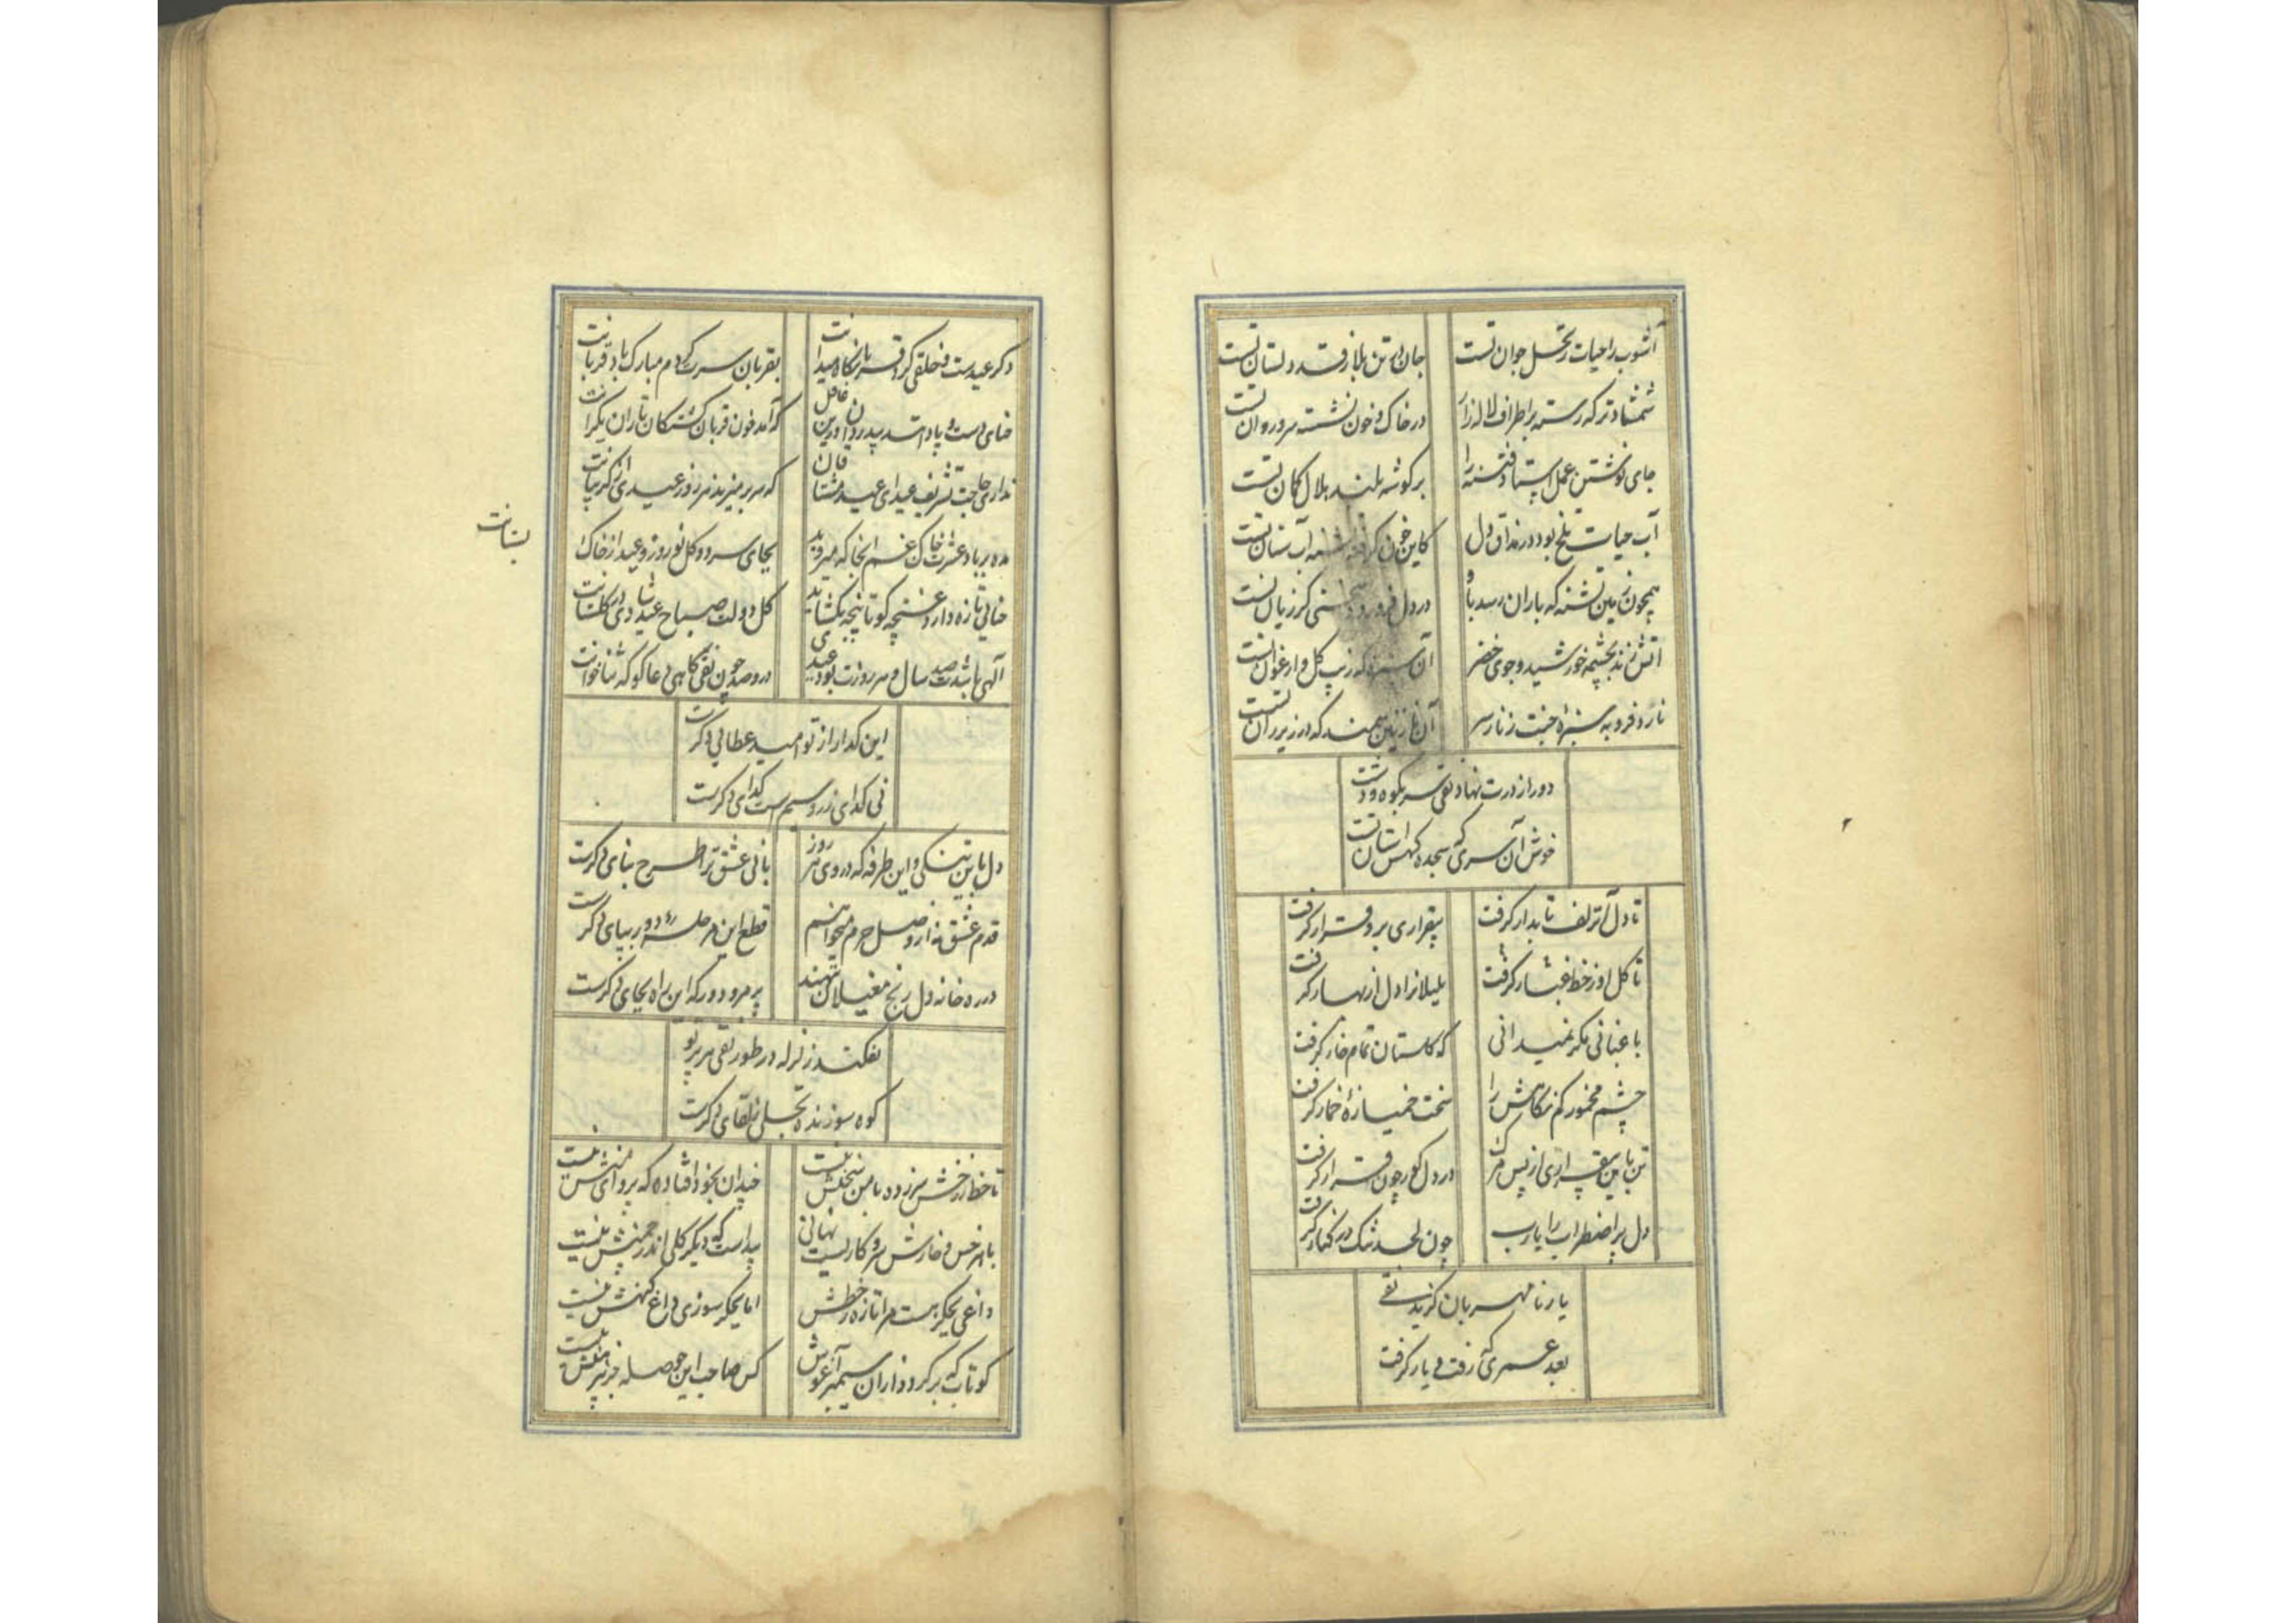 آشوب را حیات ز نخل جوان تست
جان در تن بلا ز قد دلستان تست
شمشاد تر که رسته بر اطراف لاله زار
در خاک و خون نشسته سرو روان تست
جای نوشتن عمل فتنه را
بر گوشه بلند هلال کمان تست
آب حیات تلخ بود در مذاق دل
کاین خون گرفته تشنه آب سنان تست
همچون زمین تشنه که باران رسد باو
در دل فرو رود سخنی کز زبان تست
آتش زند بچشمه خورشید و جوی خضر
آن سبزه که زیب گل و ارغوان تست
نارد فرو به سبزه جنت ز ناز سر
آن نازنین سمند که در زیر ران تست
دور از درت نهاد تقی سر بکوه و دشت
خوش آن سری که سجده کهش آستان تست
تا دل آن زلف تابدار گرفت
بیقراری برو قرار گرفت
تا گل او ز خط غبار گرفت
بلبلانرا دل از بهار گرفت
باغبانی مگر نمیدانی
که گلستان تمام خار گرفت
چشم مخمور کم نگاهش را
سخت خمیازهٔ خمار گرفت
تن باین بیقراری از پس مرگ
در دل گور چون قرار گرفت
دل پر اضطراب را یارب
چون لحد تنک در کنار گرفت
یار نامهربان گزید تقی
بعد عمری که رفت و یار گرفت
دگر عیدست و خلقی گرد قربانگاه میدانت
بقربان سرت گردم مبارک باد قربانت
حنای دست و پا
که آمد خون قربان گشتگان تا ران یکرانت
نداری حاجت تشریف عید ای عید مشتاقان
که سر بر میزند هر روز عیدی از گریبانت
مده بر باد عشرت خاک غم آنجا که میروید
بجای سرو و گل نوروز و عید از خاک
بستانت
حنایی تازه دارد غنچه کو تا پنجه بگشاید
گل دولت صباح عید شادی در گلستانت
آلهی باشدت صد سال و هر روزت بود عیدی
درو صد چون تقی گاهی دعاگو گه ثناخوانت
این گدا را ز تو امید عطائی دگرست
نی گدای زر و سیم ست گدای دگرست
دل باین تنگی و این طرفه که در وی هر روز
بانی عشق ترا طرح بنای دگرست
قدم عشق نه از وصل حرم میخواهم
قطع این مرحله دور بپای دگرست
در ره خانه دل رنج مغیلان نبهند
پر مرو دور که این راه بجای دگرست
نفکند زلزله در طور تقی هر پرتو
کوه سوزنده تجلی ز لقای دگرست
تا خط ز رخش سر زده با من سخنش نیست
چندان بخود افتاده که پروای منش نیست
با هر خس و خارش سر و کاریست نهانی
پیداست که دیگر گلی اندر چمنش نیست
داغی بجگر هست مرا تازه ز خطش
اما بجگر سوزی داغ کهنش نیست
کو تاب که بر گرد دازان سیمبر آغوش
کس صاحب این حوصله جز پیرهنش نیست